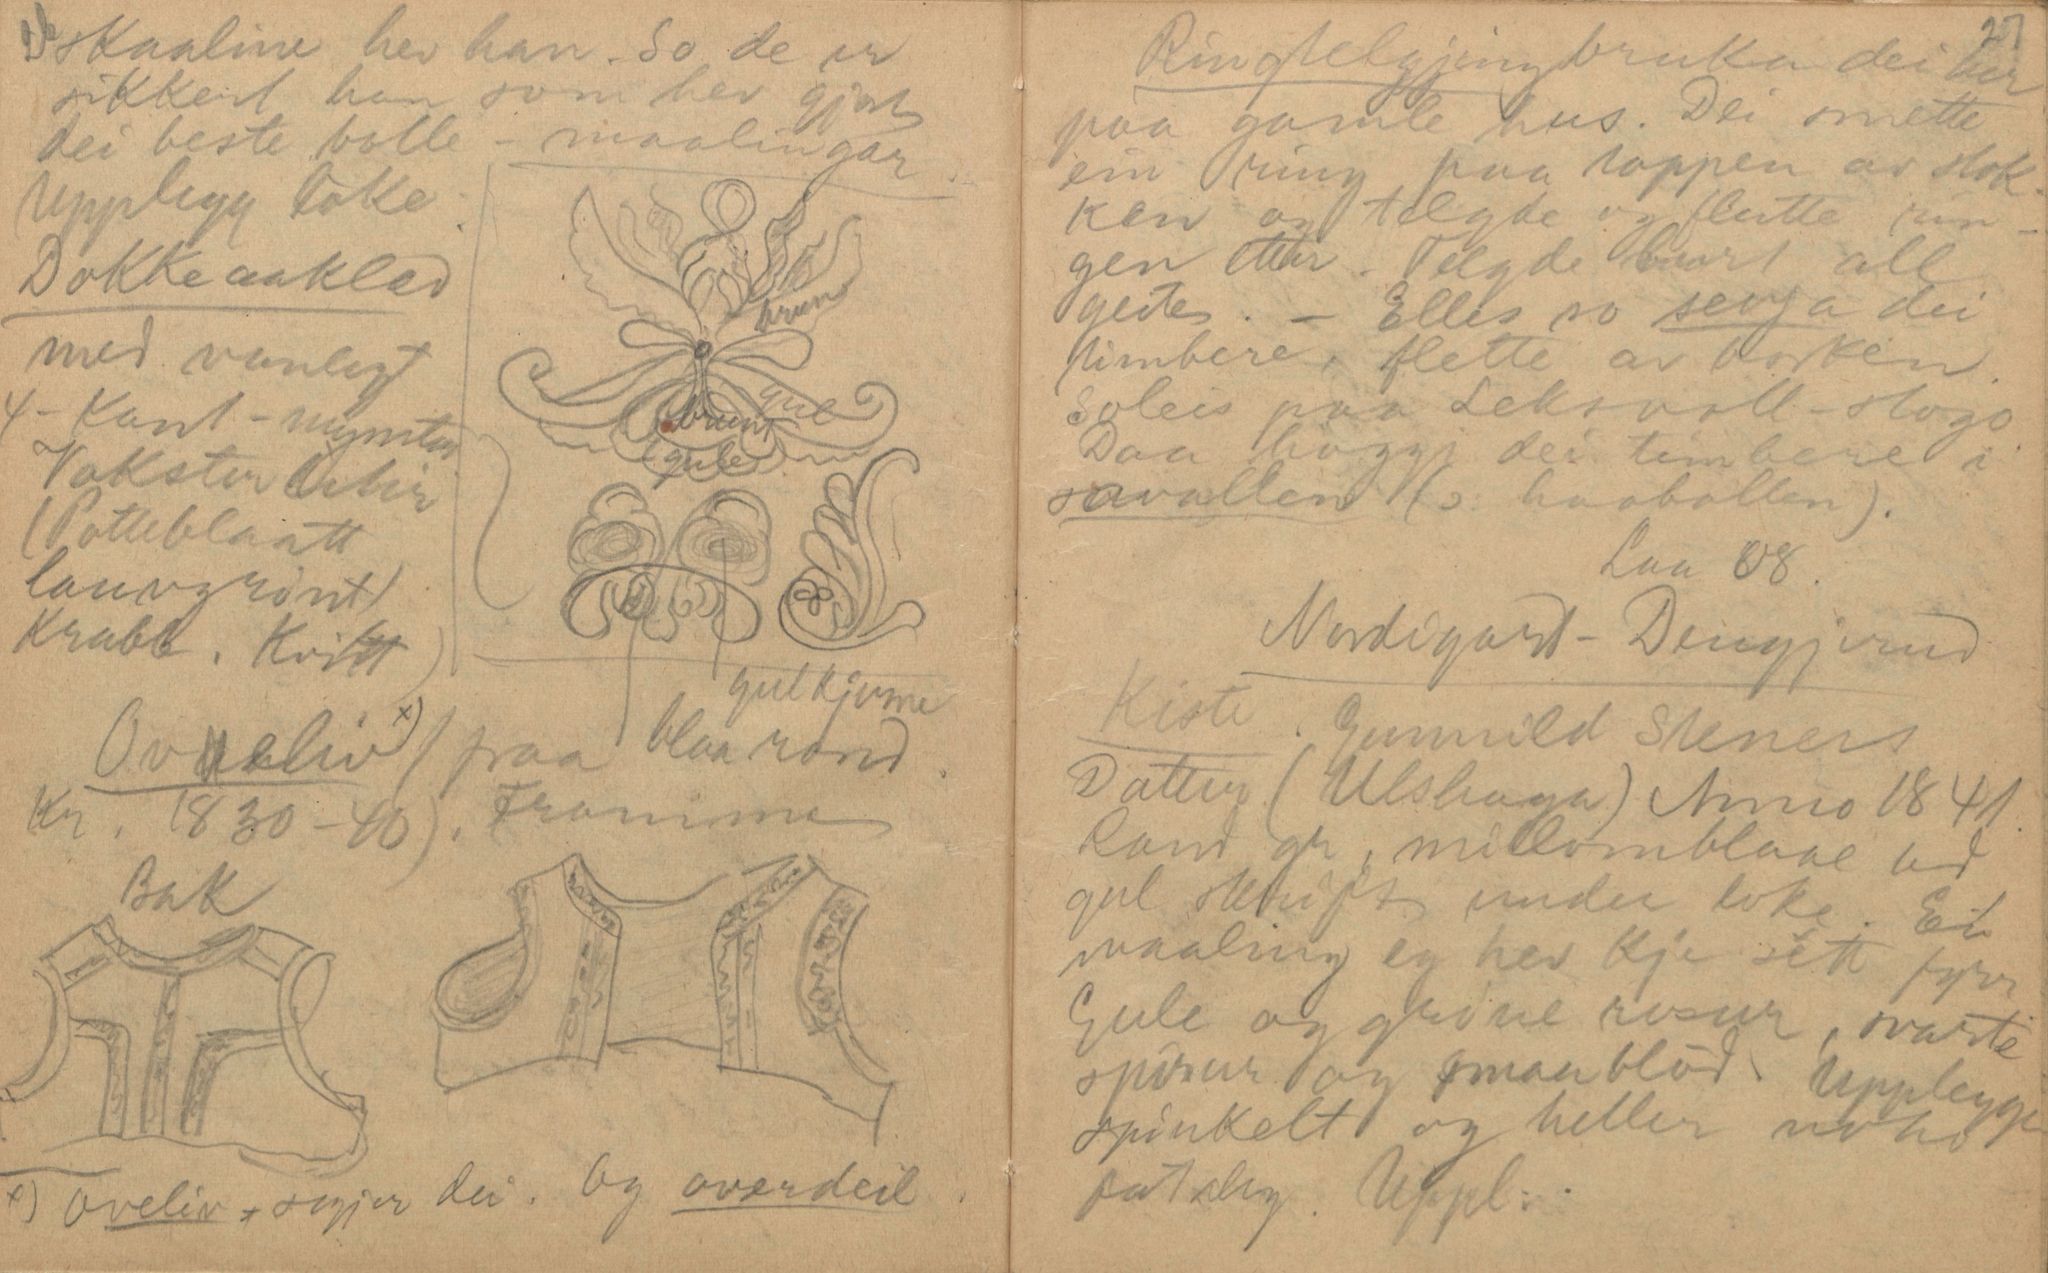 skaaline hev han. So de er
sikkert han som hev gjort
dei beste bolle-maalingar.
Upplegg loke.
Dokkeaaklæd
med vanlegt
4-kant-mynster
Vokster liter
(Potteblaatt
lauvgrönt)
Krabb. Kvitt)
brun
gul
brunt
gule
gulkjerne
paa blaa rand.
Oveliv x)
Kr. 1830-40). Framme
Bak
x) oveliv, segjer dei. Og overdeil.
27
Ringtelgjing bruka dei her
paa gamle hus. Dei smette
ein ring paa toppen av stok-
ken og telgde og flutte rin-
gen etter. Telgde burt all
geite. - Elles so sevja dei
timbere, flette av borken.
Soleis paa Leksvoll-stogo.
Daa höggj dei timbere i
savallen (ɔ: haaballen).
Laa 08.
Nordigard-Dengjerud
Kiste. Gunnild Steners
Datter (Ulshaga) Anno 1841.
Rand gr, millomblaae ved
gul skrift under loke. Ei
maaling eg hev kje sett fyrr
Gule og gröne rosur, svarte
spirur og smaablöd. Upplegge
spinkelt og heller
fatsleg. Uppl:.